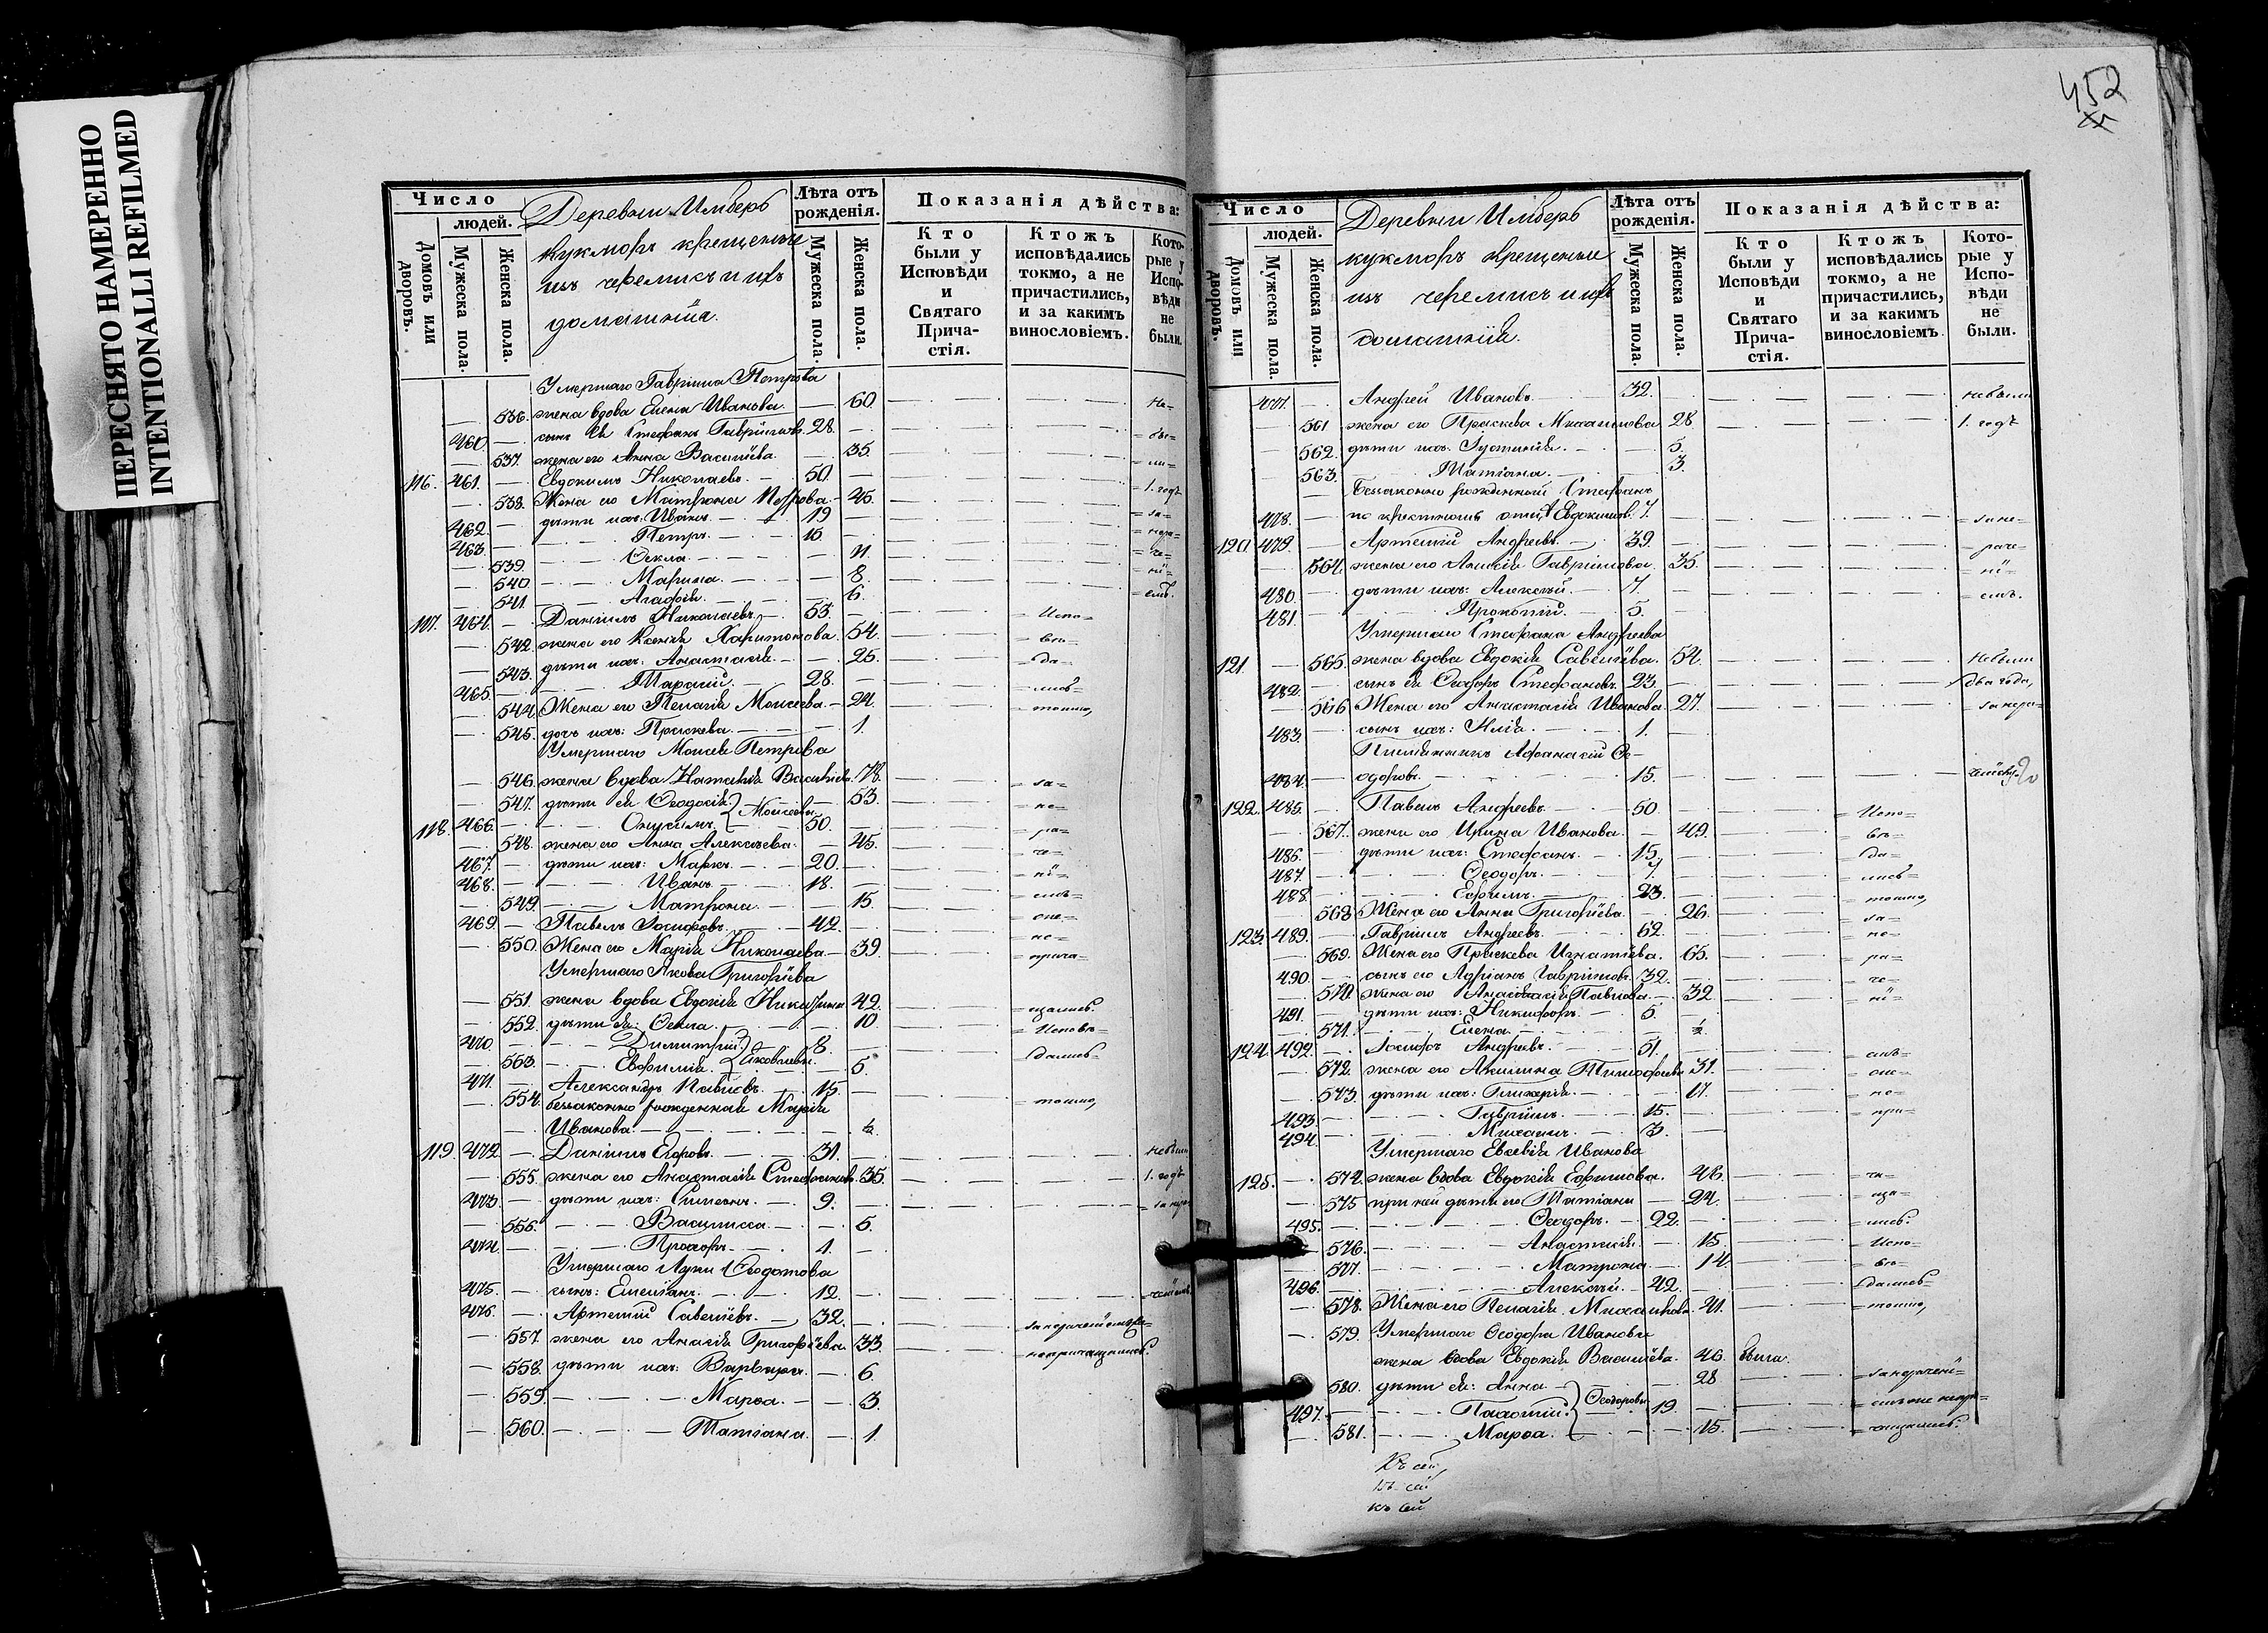 ПЕРЕСНЯТО НАМЕРЕННО
INTENTIONALLI REFILMED
452
Число
людей.
Домовъ или дворовъ.
Мужеска пола.
Женска пола.
Деревни Имберъ
кукморъ крещеные
изъ черемисъ и ихъ
домашнія.
Лѣта отъ рожденія.
Мужеска пола.
Женска пола.
Показанія дѣйства:
Кто были у Исповѣди и Святаго Прича- стія.
Ктожъ исповѣдались токмо, а не причастились, и за какимъ винословіемъ.
Кото- рые у Испо- вѣди не были.
Умершаго Гавріила Петрова
536. жена вдова Елена Иванова. 60.
460. сынъ ея Стефанъ Гавріиловъ. 28.
537. жена его Анна Васильева. 35.
116. 461. Евдокимъ Николаевъ. 50.
538. Жена его Матрона Петрова. 45. 1. годъ
462. дѣти ихъ: Иванъ. 19
463. Петръ. 16.
539. Ѳекла. 11.
540. Марина. 8.
541. Агафія. 6.
117. 464. Даніилъ Николаевъ. 53. Испо=
542. жена его Ксенія Харитонова. 54. =вѣ=
543. дѣти ихъ: Анастасія. 25. =да=
465. Тарасій. 28. =лись=
544. Жена его Пелагія Моисеева. 24. токмо,
545. дочь ихъ: Праскева. 1.
Умершаго Моисея Петрова
546. жена вдова Наталія Васильева. 78. =за=
547. дѣти ея Ѳеодосія Моисеевы 53. =не=
118. 466. Онисимъ. 50. =ра=
548. жена его Анна Алексѣева. 45. =че=
467. дѣти ихъ: Маркъ. 20. =ні=
468. Иванъ. 18. =емъ=
549. Матрона. 15.
469. Павелъ Іосифовъ. 42. =не=
550. Жена его Марія Николаева. 39. =прича=
Умершаго Якова Григорьева
551. жена вдова Евдокія 42. =щались.
552. дѣти ея: Ѳекла. 10. =Исповѣ=
470. Димитрій Яковлевы. 8. =дались=
553. Евфимія. 5.
471. Александръ Павловъ. 15.
554. беззаконно рожденная Марія токмо,
Иванова.
119 472. Даніилъ Егоровъ. 31. небыли
555. жена его Анастасія Стефанова. 35. 1. годъ
473. дѣти ихъ: Симеонъ. 9.
556. Василисса. 5.
474. Прохоръ. 1.
Умершаго Луки Ѳедотова
475. сынъ: Емеліанъ. 12.
476. Артемій Савельевъ. 32.
557. жена его Анисія Григорьева. 33. непричащались.
558. дѣти ихъ: Варвара. 6.
559. Марѳа. 3.
560. Татіана. 1.
Число
людей.
Домовъ или дворовъ.
Мужеска пола.
Женска пола.
Деревни Имберъ
кукморъ крещеные
изъ черемисъ и ихъ
домашнія.
Лѣта отъ рожденія.
Мужеска пола.
Женска пола.
Показанія дѣйства:
Кто были у Исповѣди и Святаго Прича- стія.
Ктожъ исповѣдались токмо, а не причастились, и за какимъ винословіемъ
Кото- рые у Испо- вѣди не были.
477. Андрей Ивановъ. 32. небыли
561 жена его Праскева Михаилова 28. 1. годъ
562. дѣти ихъ: Іустинія. 5.
563. Татіана. 3.
Беззаконно рожденный Стефанъ
478. по крестномъ отцѣ Евдокимовъ. 7. =за не=
120. 479. Артемій Андреевъ. 39. =раче=
564. жена его Анисія Гавріилова. 35. =ні=
480. дѣти ихъ: Алексѣй. 7. =емъ.
481. Прокопій. 5.
Умершаго Стефана Андреева
121 565. жена вдова Евдокія Савельева. 54. небыли
482. сынъ ея Ѳедоръ Стефановъ. 23. два года,
566 Жена его Анастасія Иванова. 27.
483. сынъ ихъ: Илія. 1.
Племянникъ Афанасій Ѳе-
484. одоровъ. 15.
122. 485. Павелъ Андреевъ. 50. =Испо=
567. жена его Ирина Иванова. 49. =вѣ=
486. дѣти ихъ: Стефанъ. 15. =да=
487. Ѳеодоръ. 7. =лись=
488. Ефимъ. 23. токмо,
568. Жена его Анна Григорьева. 26. =за=
123. 489. Гавріилъ Андреевъ. 62. =не=
569. Жена его Праскева Игнатьева. 65. =ра=
490. сынъ его Адріанъ Гавріиловъ. 32. =че=
570. жена его Анастасія Павлова. 32. =ні=
491. дѣти ихъ: Никифоръ. 5.
571. Елена.
124. 492. Іосифъ Андреевъ. 51. =емъ=
572. жена его Акилина Тимофеева 31.
573. дѣти ихъ: Гликерія. 17. =не=
493. Гавріилъ. 15. =при=
494. Михаилъ. 3.
Умершаго Евсевія Иванова
125. 574. жена вдова Евдокія Ефимова. 48. =ча=
575 при ней дѣти его Татіана 24. =ща=
495. Ѳеодоръ. 22. =лись.
576. Анастасія. 15. Испо=
577. Матрона. 14. =вѣ=
496. Алексѣй. 42. =дались=
578. Жена его Пелагія Михаилова. 41. токмо,
579. Умершаго Ѳеодора Иванова
жена вдова Евдокія Васильева. 46. была.
580. дѣти ея: Анна Ѳеодоровы 28 =за нерачені=
497. Пахомій. 19.
581. Марѳа. 15. =чащались.
къ сей